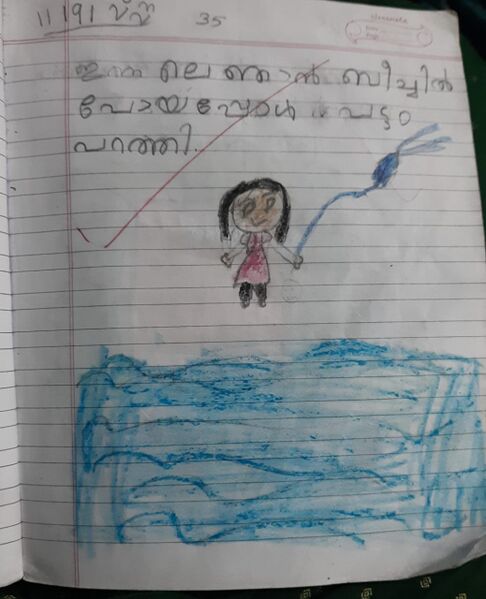 11/9/ 35
ഇന്നലെ ഞാൻ ബീച്ചിൽ
പോയപ്പോൾ പട്ടം
പറത്തി.